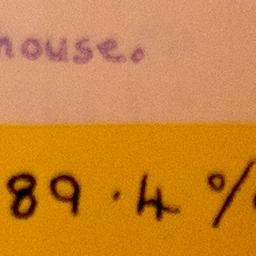 mouse.
89.4 %